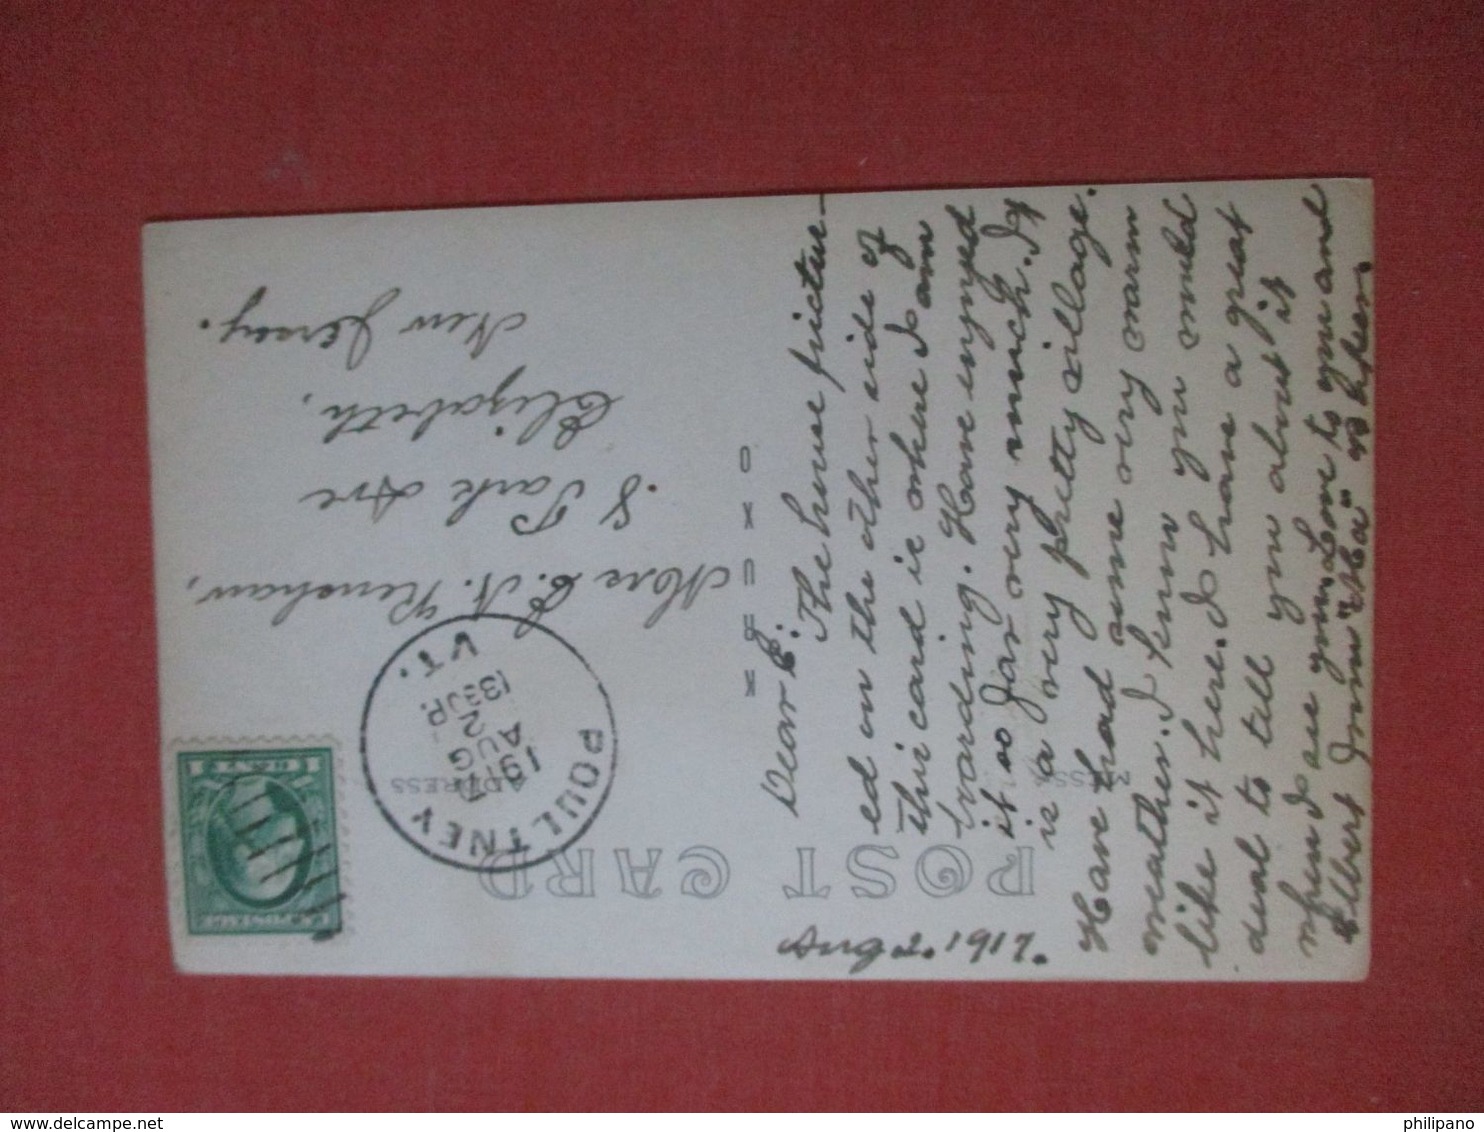 POST CARD
Aug 2. 1917.
MESSAGE
Dear E:
The house pictur-
ed on the other side of
this card is where I am
boarding. Have enjoyed
it so far very much. It
is a very pretty village.
Have had some very warm
weather. I know you would
like it here. I have a great
deal to tell you about it
when I see you. Love to you and
Elbert from "Ma"
KRUXO
ADDRESS
POULTNEY
1917
AUG
A 2 P.
VT.
1 CENT 1
U.S. POSTAGE
Mrs E. N. Renshaw,
8 Park Ave
Elizabeth,
New Jersey.
www.delcampe.net
philipano